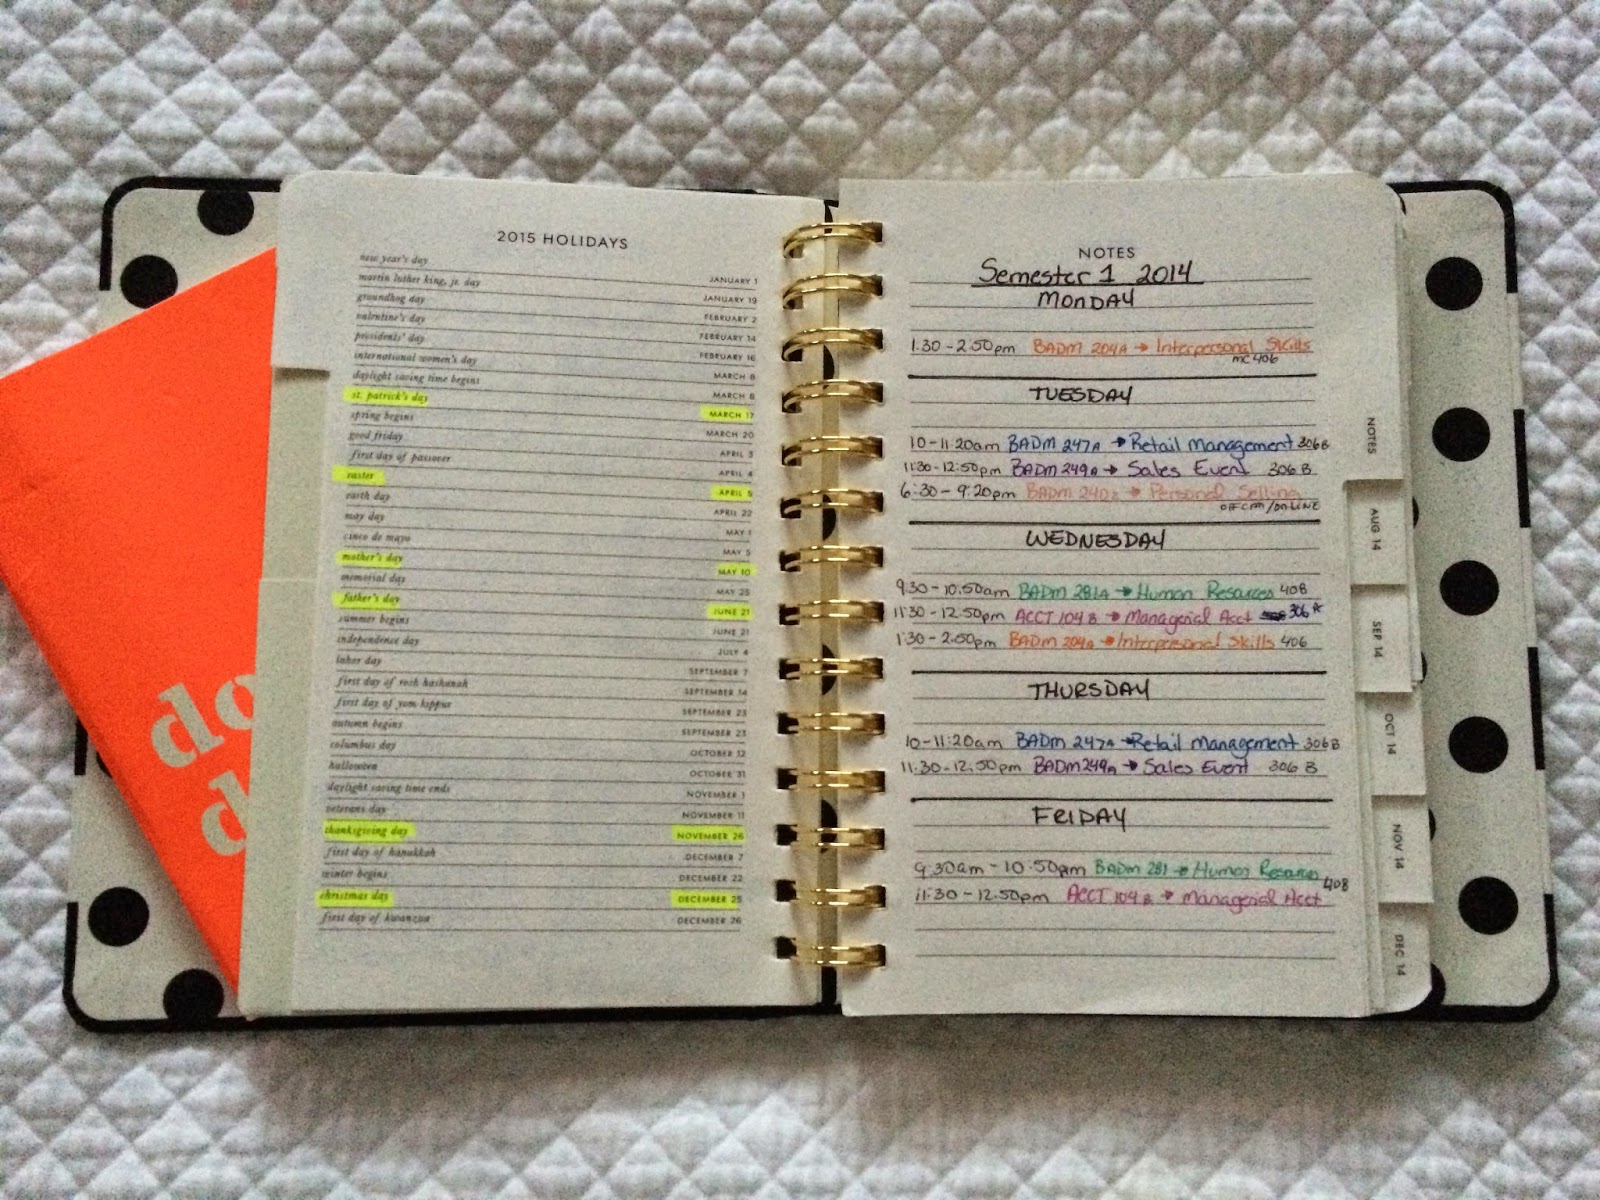 do
d
2015 HOLIDAYS
new year's day JANUARY 1
martin luther king, jr. day JANUARY 19
groundhog day FEBRUARY 2
valentine's day FEBRUARY 14
presidents' day FEBRUARY 16
international women's day MARCH 8
daylight saving time begins MARCH 8
st. patrick's day MARCH 17
spring begins MARCH 20
good friday APRIL 3
first day of passover APRIL 4
easter APRIL 5
earth day APRIL 22
may day MAY 1
cinco de mayo MAY 5
mother's day MAY 10
memorial day MAY 25
father's day JUNE 21
summer begins JUNE 21
independence day JULY 4
labor day SEPTEMBER 7
first day of rosh hashanah SEPTEMBER 14
first day of yom kippur SEPTEMBER 23
autumn begins SEPTEMBER 23
columbus day OCTOBER 12
halloween OCTOBER 31
daylight saving time ends NOVEMBER 1
veterans day NOVEMBER 11
thanksgiving day NOVEMBER 26
first day of hanukkah DECEMBER 7
winter begins DECEMBER 22
christmas day DECEMBER 25
first day of kwanzaa DECEMBER 26
NOTES
Semester 1 2014
MONDAY
1:30-2:50pm BADM 204A → Interpersonal Skills
MC 406
TUESDAY
10-11:20am BADM 247A → Retail Management 306B
11:30-12:50pm BADM 249A → Sales Event 306B
6:30-9:20pm BADM 240B → Personal Selling
OFFCAM/ONLINE
WEDNESDAY
9:30-10:50am BADM 281A → Human Resources 408
11:30-12:50pm ACCT 104B → Managerial Acct 306A
1:30-2:50pm BADM 204A → Interpersonal Skills 406
THURSDAY
10-11:20am BADM 247A → Retail Management 306B
11:30-12:50pm BADM 249A → Sales Event 306B
FRIDAY
9:30am-10:50pm BADM 281 → Human Resources
408
11:30-12:50pm ACCT 104B → Managerial Acct
NOTES
AUG 14
SEP 14
OCT 14
NOV 14
DEC 14